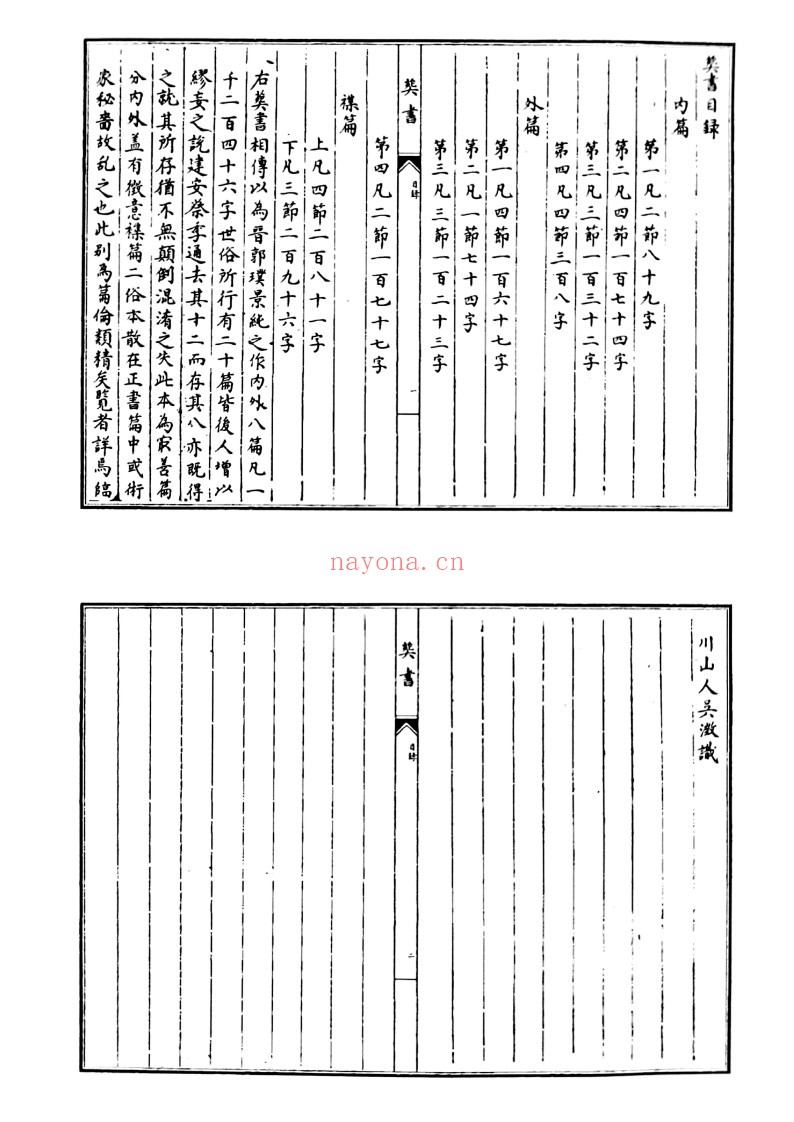 葬書目録
内篇
第一凡二節八十九字
第二凡四節一百七十四字
第三凡三節一百三十二字
第四凡四節三百八字
外篇
第一凡四節一百六十七字
第二凡一節七十四字
第三凡三節一百二十三字
葬書 目録 一
第四凡二節一百七十七字
襍篇
上凡四節二百八十一字
下凡三節二百九十六字
右葬書相傳以為晉郭璞景純之作内外八篇凡一
千二百四十六字世俗所行有二十篇皆後人增以
繆妄之說建安蔡季通去其十二而存其八亦既得
之訛其所存猶不無顛倒混淆之失此本為㝡善篇
分内外盖有微意襍篇二俗本散在正書篇中或術
家秘嗇故乱之也此别為篇倫類精矣覧者詳焉臨
nayona.cn
川山人吳澂識
葬書 目録 二